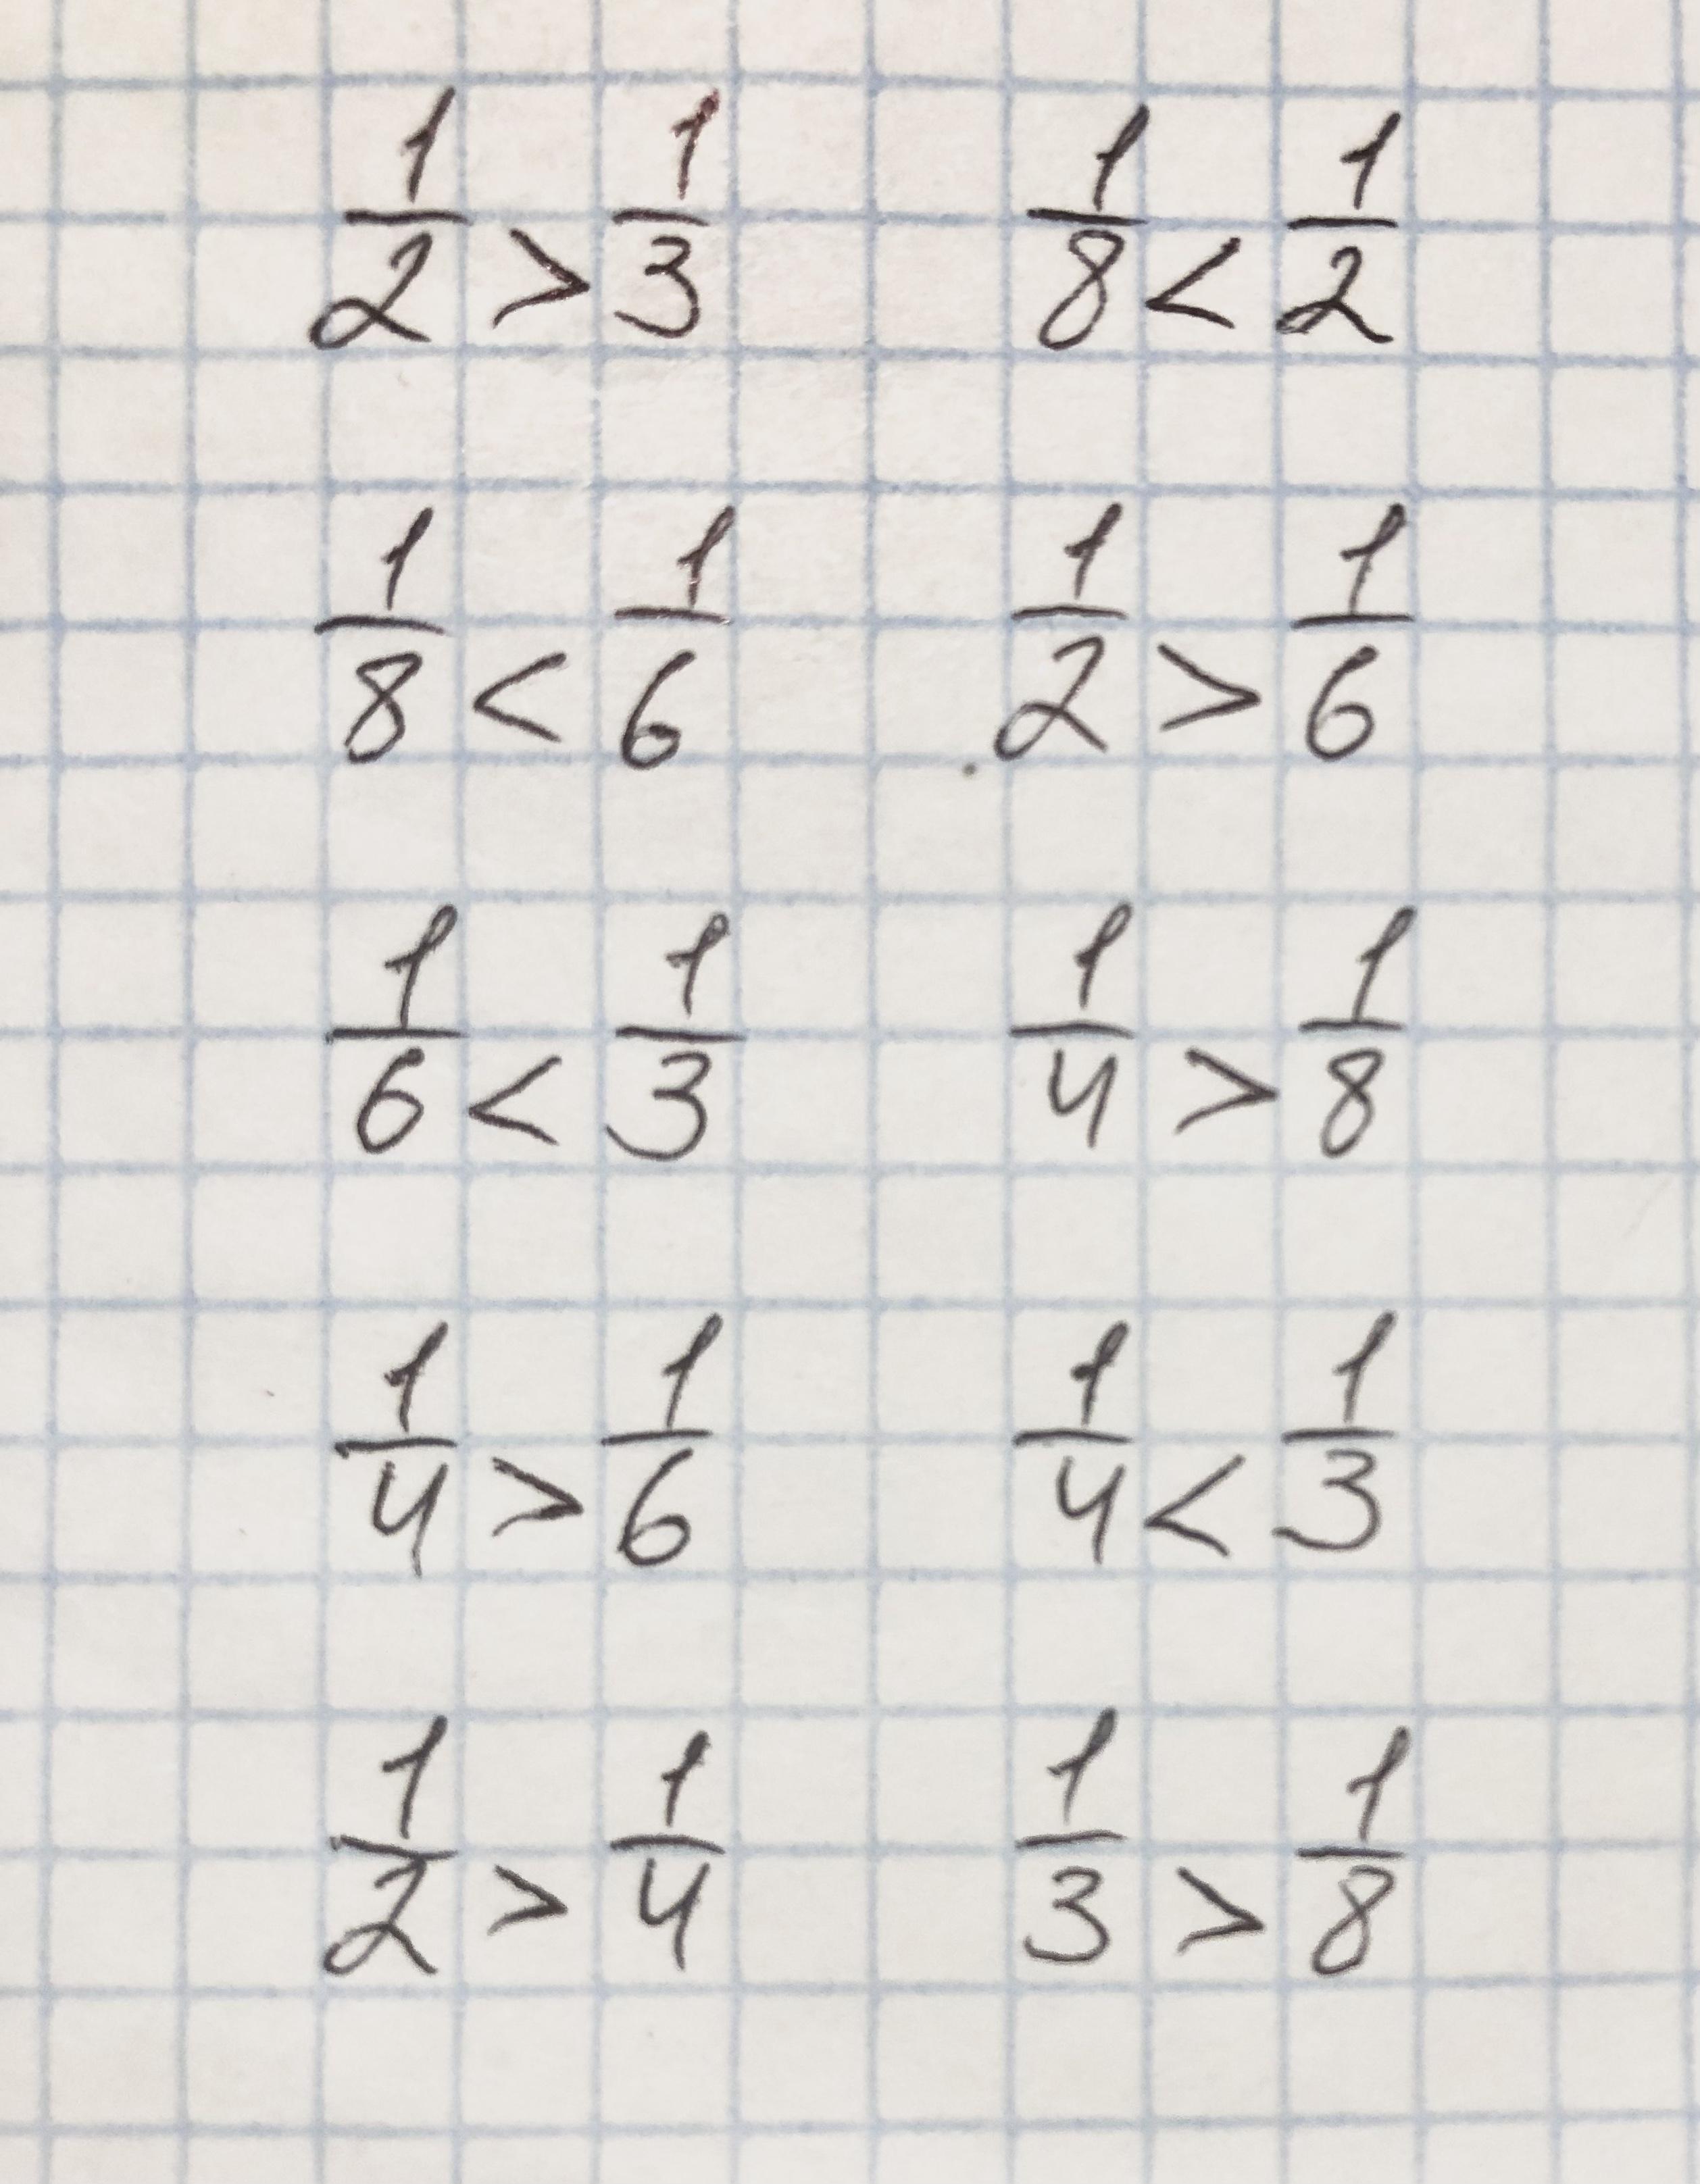 1/2 > 1/3 1/8 < 1/2
1/8 < 1/6 1/2 > 1/6
1/6 < 1/3 1/4 > 1/8
1/4 > 1/6 1/4 < 1/3
1/2 > 1/4 1/3 > 1/8